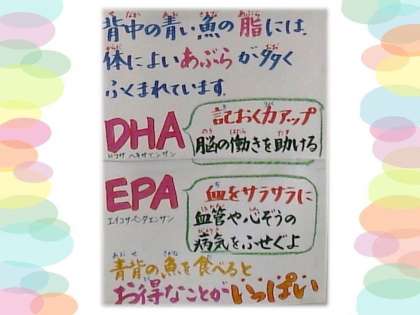 背中の青い魚の脂には、
体によいあぶらが多く
ふくまれています。
DHA
ドコサヘキサエンサン
記おく力アップ
脳の働きを助ける
EPA
エイコサペンタエンサン
血をサラサラに
血管や心ぞうの
病気をふせぐよ
青背の魚を食べると
お得なことがいっぱい